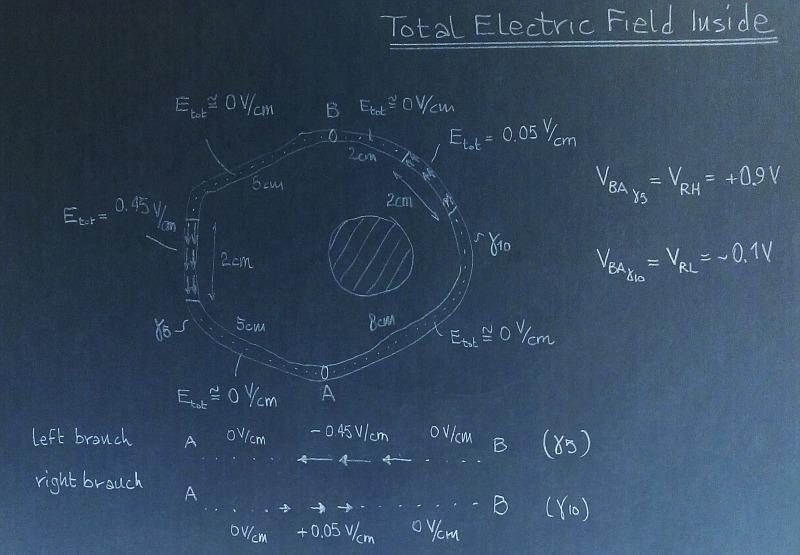 Total Electric Field Inside
E_tot ≅ 0 V/cm
B
E_tot ≅ 0 V/cm
E_tot = 0.05 V/cm
2cm
5cm
2cm
E_tot = 0.45 V/cm
2cm
γ10
γ5
5cm
8cm
E_tot ≅ 0 V/cm
A
E_tot ≅ 0 V/cm
V_BA γ5 = V_RH = +0.9V
V_BA γ10 = V_RL = -0.1V
left branch A 0V/cm -0.45V/cm 0V/cm B (γ5)
right branch A B (γ10)
0V/cm +0.05 V/cm 0V/cm